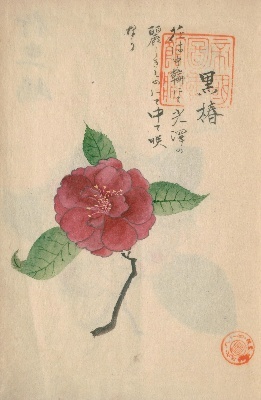 黒椿
花は中輪にて光澤の
麗しきものにて中て咲
なり